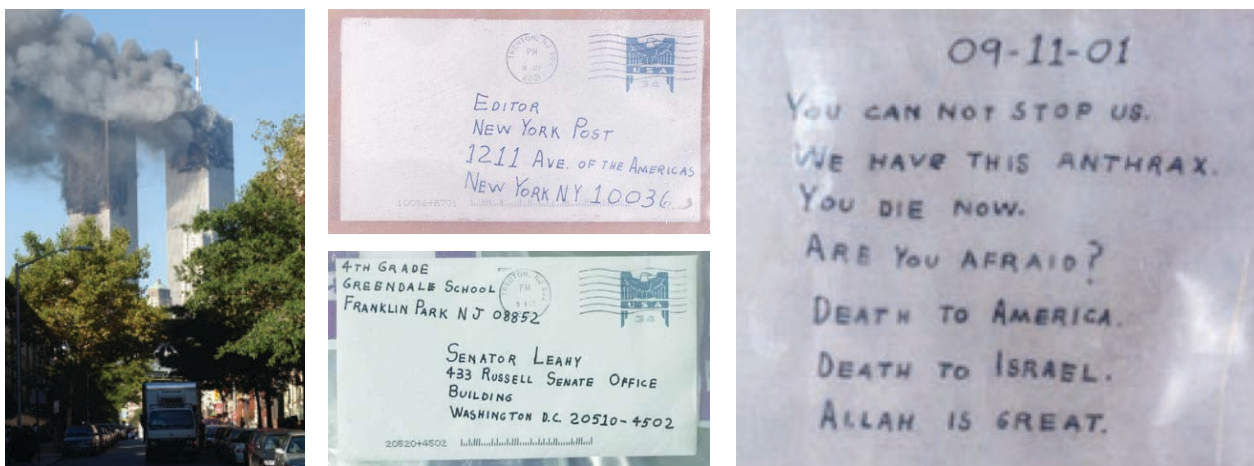 TRENTON, NJ
PM
2001
USA
34
EDITOR
NEW YORK POST
1211 AVE. OF THE AMERICAS
NEW YORK NY 10036
10036+8701
3
4TH GRADE
GREENDALE SCHOOL
FRANKLIN PARK NJ 08852
TRENTON, NJ
PM
USA
34
SENATOR LEAHY
433 RUSSELL SENATE OFFICE
BUILDING
WASHINGTON D.C. 20510-4502
20520+4502
09-11-01
YOU CAN NOT STOP US.
WE HAVE THIS ANTHRAX.
YOU DIE NOW.
ARE YOU AFRAID?
DEATH TO AMERICA.
DEATH TO ISRAEL.
ALLAH IS GREAT.